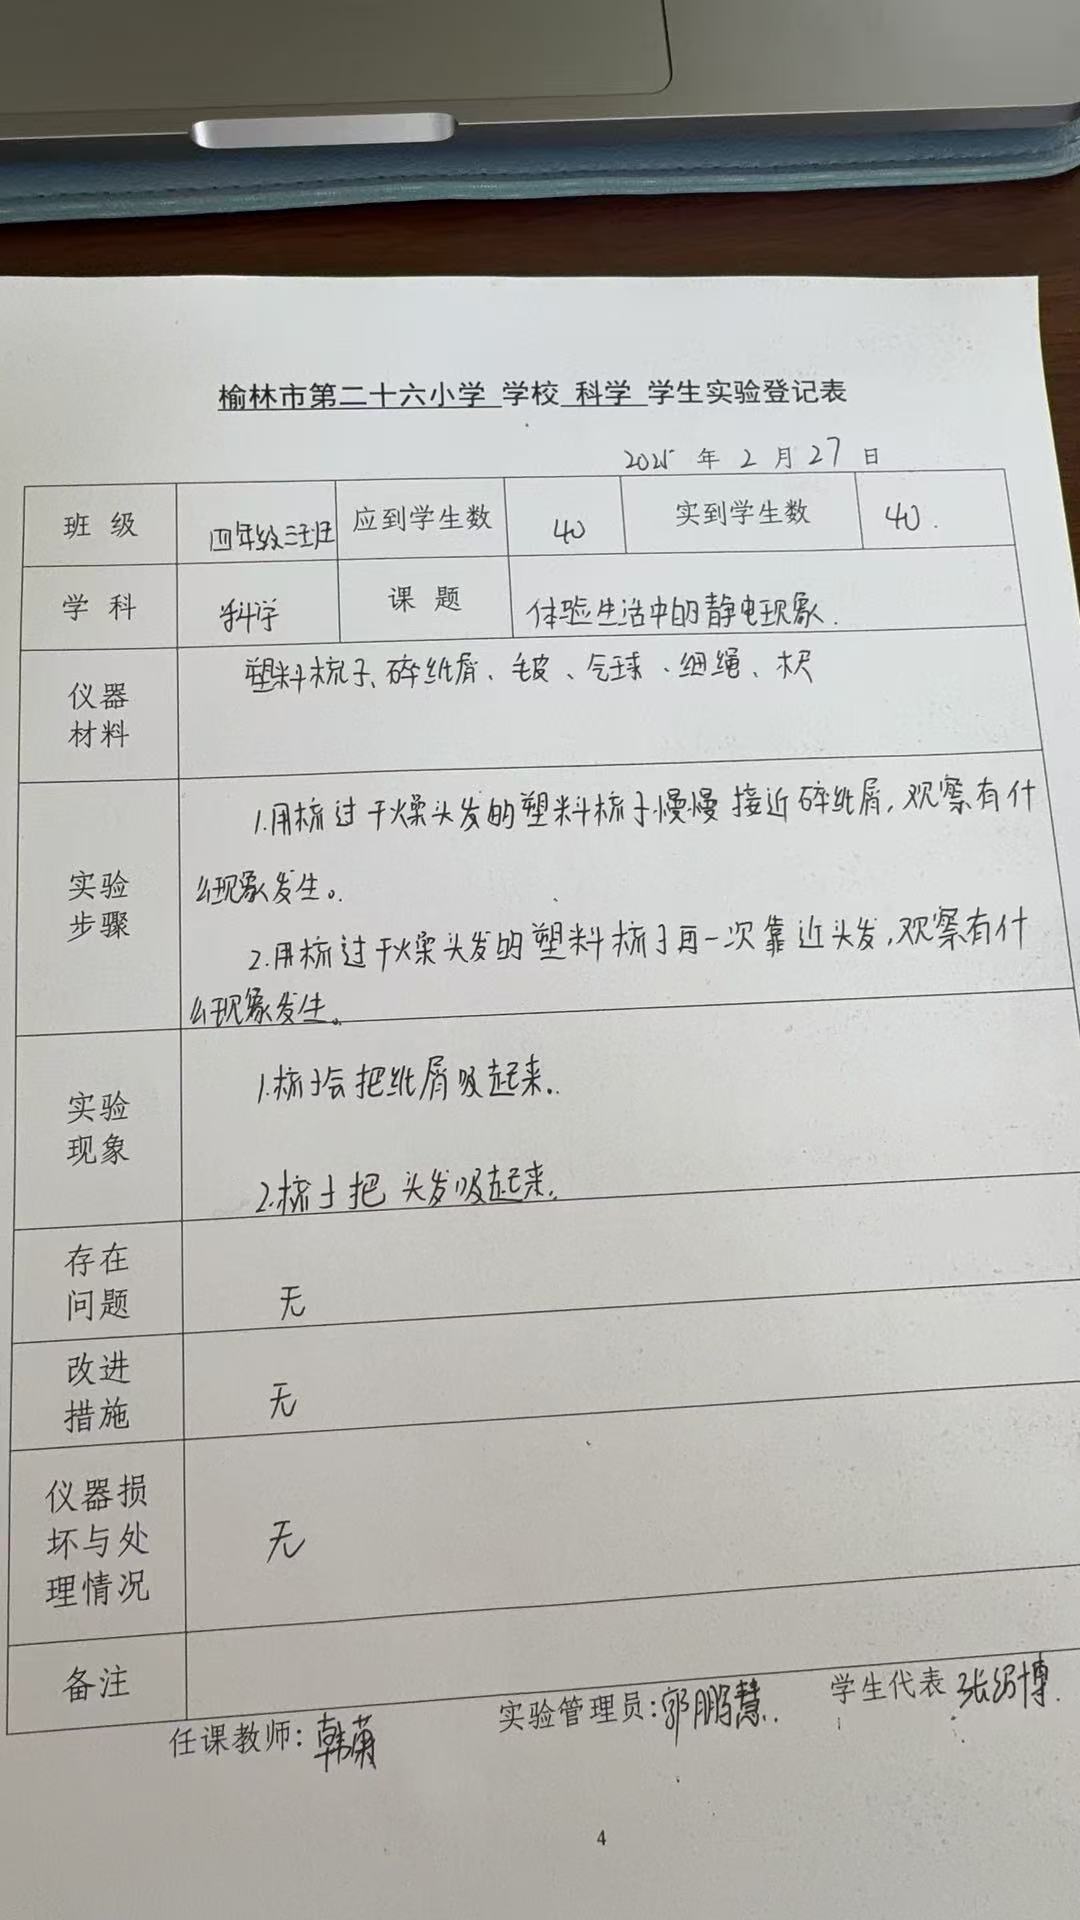 榆林市第二十六小学 学校 科学 学生实验登记表
2025 年 2 月 27 日
班 级 四年级三班 应到学生数 40 实到学生数 40.
学 科 科学 课 题 体验生活中的静电现象.
仪器
材料
塑料梳子、碎纸屑、毛皮、气球、细绳、木尺
实验
步骤
1.用梳过干燥头发的塑料梳子慢慢接近碎纸屑,观察有什
么现象发生。
2.用梳过干燥头发的塑料梳子再一次靠近头发,观察有什
么现象发生。
实验
现象
1.梳子会把纸屑吸起来.
2.梳子把头发吸起来.
存在
问题
无
改进
措施
无
仪器损
坏与处
理情况
无
备注
任课教师: 韩
实验管理员:郭鹏慧.
学生代表 张 博.
4